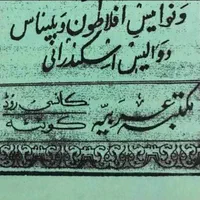 ونوامیس افلاطون وبلیناس
دوالیس اسکندرانی
مکتبہ عربیہ
کانسی روڈ
کوئٹہ